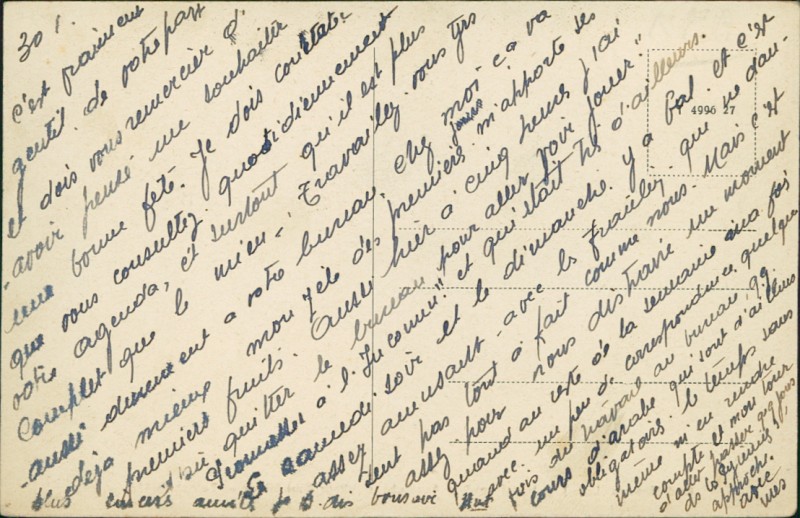 30/.
c'est vraiment
gentil de votre part
et dois vous remercier d'
avoir pensé me souhaiter
une bonne fête. Je dois constater
que vous consultez quotidiennement
votre agenda, et surtout qu'il est plus
complet que le mien. Travaillez vous tjrs
aussi durement a votre bureau, chez moi ça va
déjà mieux mon zèle des premiers jours m'apporte ses
premiers fruits. Aussi hier a cinq heures j'ai
pu quitter le bureau pour aller voir jouer "
Promesses à l'Inconnu" et qu'était très d'ailleurs.
Le samedi soir et le dimanche y a Bal et c'est
assez amusant avec les qui ne dan-
sent pas tout à fait comme nous. Mais c'est
assez pour nous distraire un moment
quand au reste de la semaine ma foi
avec un peu de correspondance, quelque
fois du travail au bureau, qq.
cours d'arabe qui sont d'ailleurs
obligatoires le temps sans
même m'en rendre
compte et mon tour
d'aller passer qq jours
approche.
avec
mes
plus amitiés je dis bonsoir
4996 27